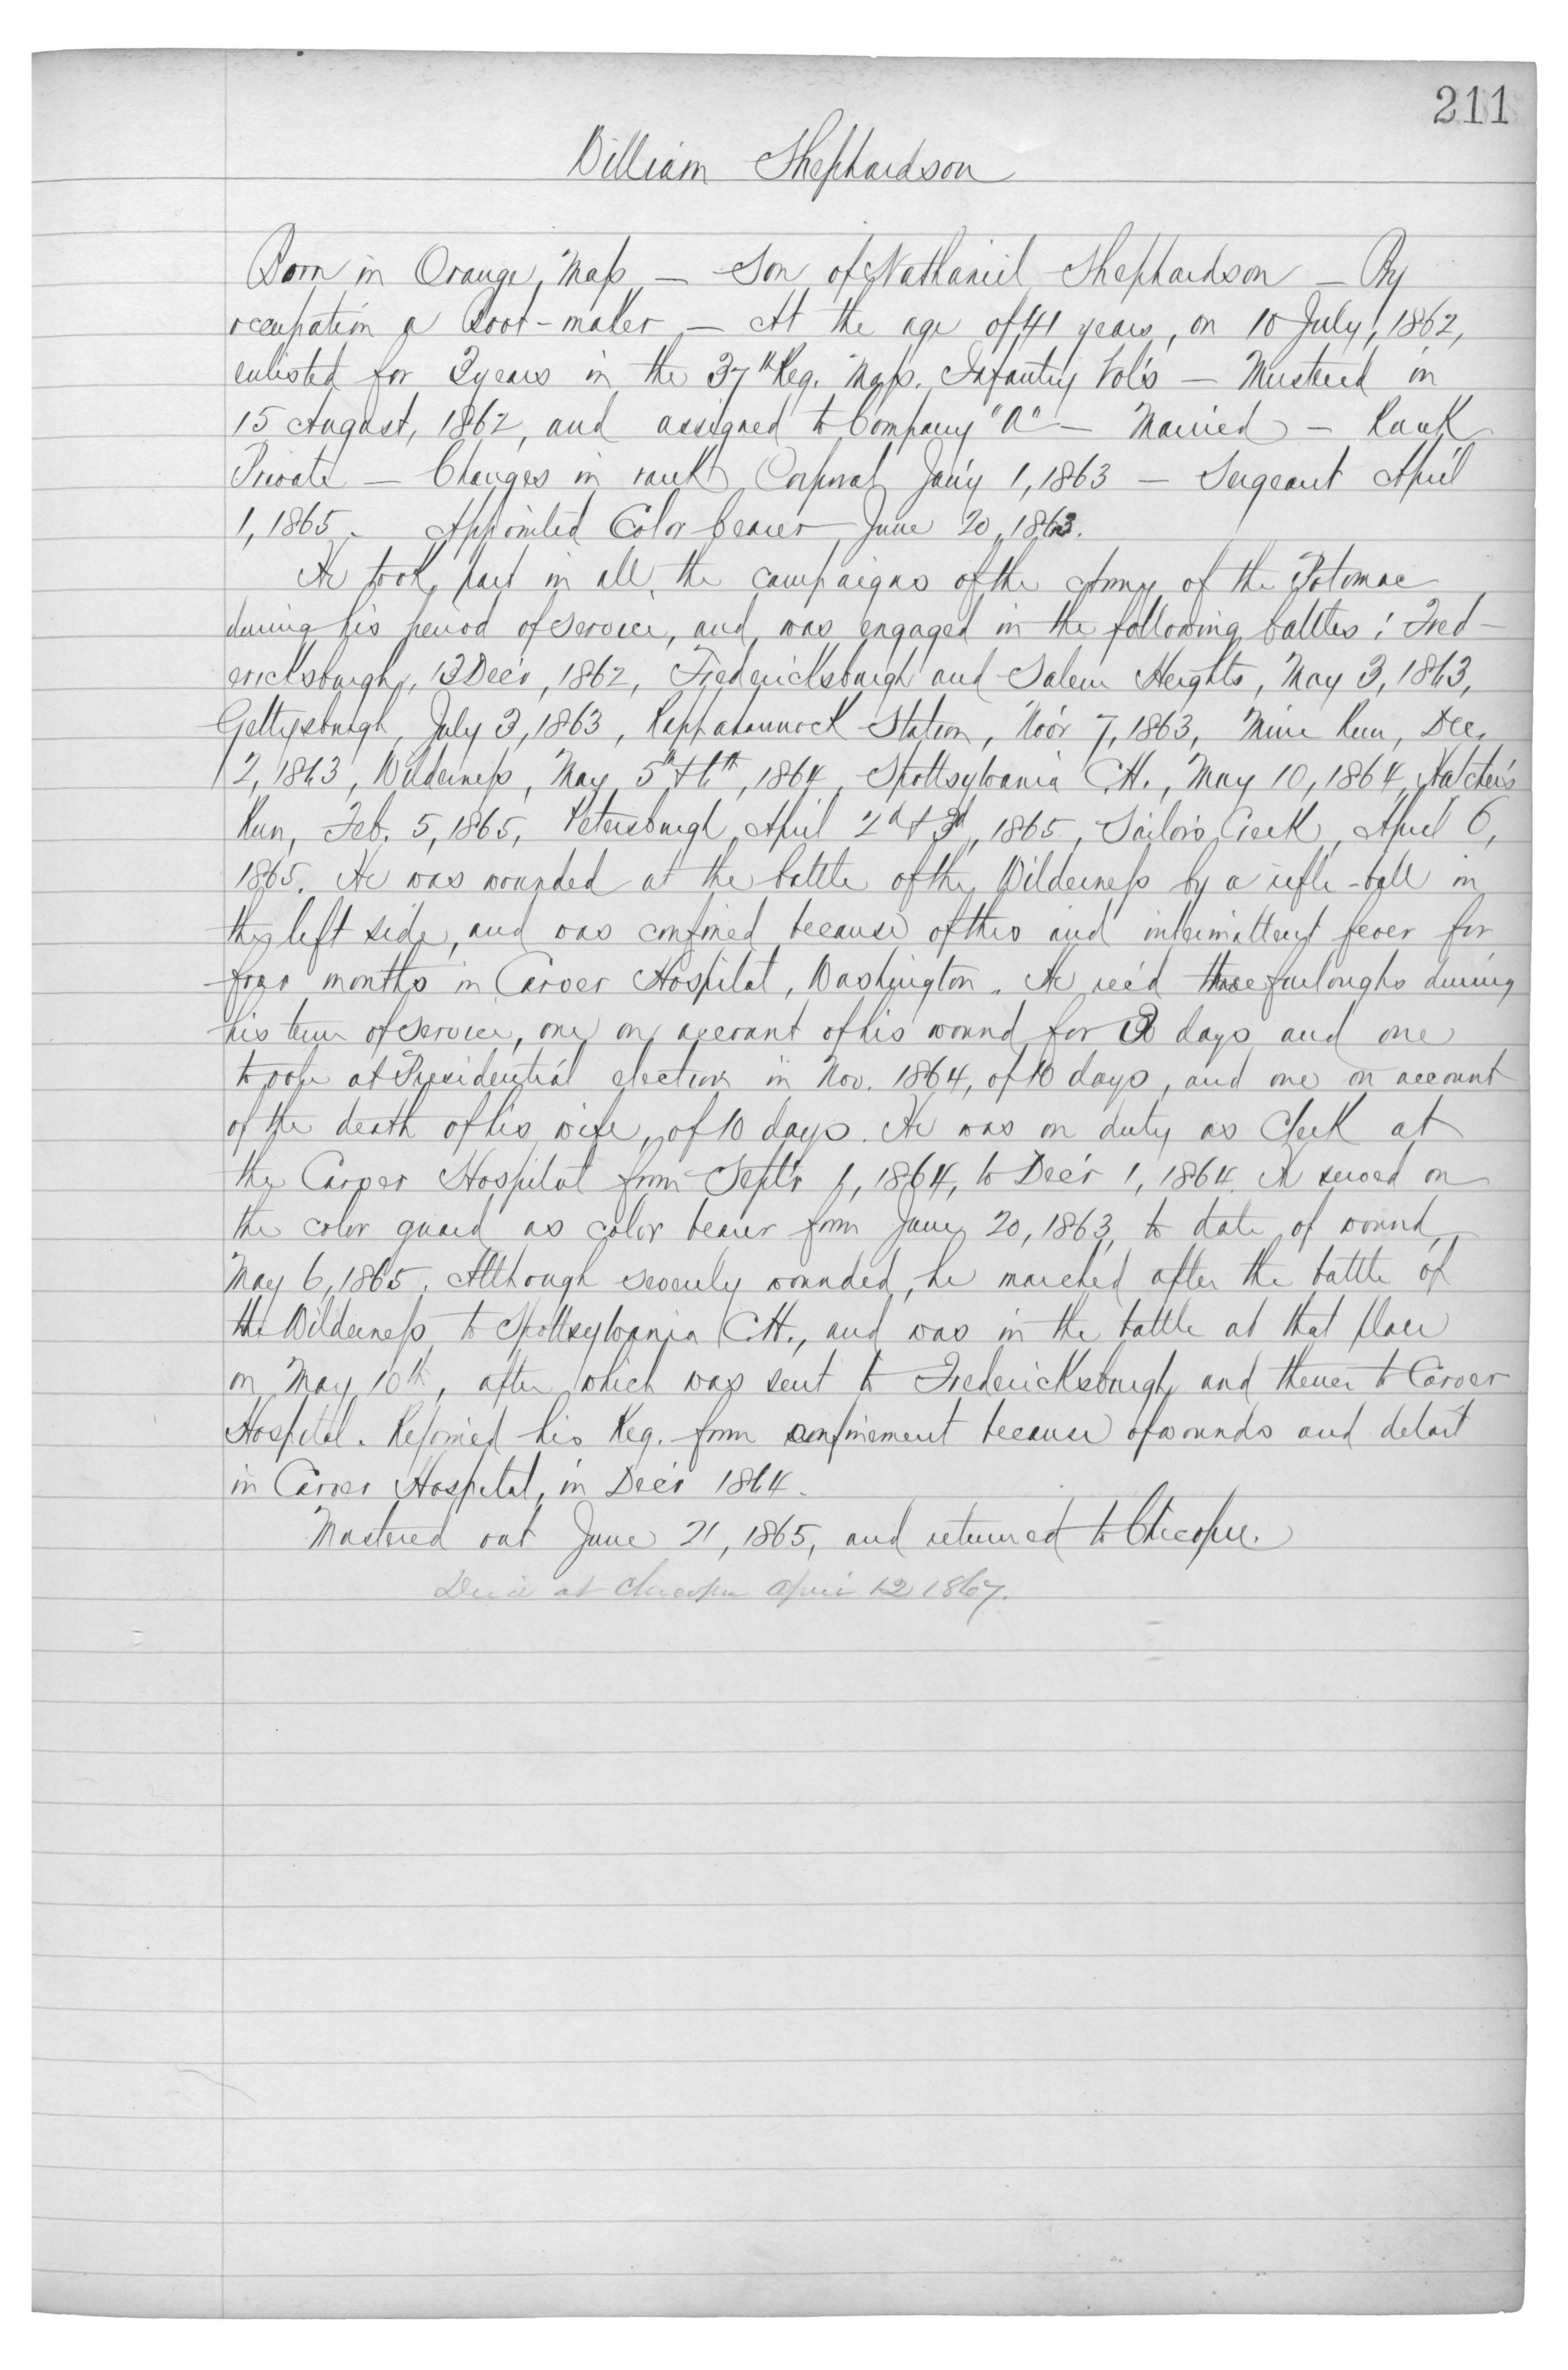 211
William Shephardson
Born in Orange, Mass. — Son of Nathaniel Shephardson — By
occupation a Boot-maker — At the age of 41 years, on 10 July, 1862,
enlisted for 3 years in the 37th Reg. Mass. Infantry Vol's — Mustered in
15 August, 1862, and assigned to Company "A" — Married — Rank
Private — Changes in rank, Corporal Jan'y 1, 1863 — Sergeant April
1, 1865. Appointed Color bearer June 20, 1863.
He took part in all the campaigns of the Army of the Potomac
during his period of service, and was engaged in the following battles: Fred-
ericksburgh, 13 Dec'r, 1862, Fredericksburgh and Salem Heights, May 3, 1863,
Gettysburgh, July 3, 1863, Rappahannock Station, Nov'r 7, 1863, Mine Run, Dec.
2, 1863, Wilderness, May 5th & 6th, 1864, Spottsylvania C.H., May 10, 1864, Hatcher's
Run, Feb. 5, 1865, Petersburgh, April 2d & 3d, 1865, Sailor's Creek, April 6,
1865. He was wounded at the battle of the Wilderness by a rifle-ball in
the left side, and was confined because of this and intermittent fever for
four months in Carver Hospital, Washington. He rec'd three furloughs during
his term of service, one on account of his wound for days and one
to vote at Presidential election in Nov. 1864, of 10 days, and one on account
of the death of his wife, of 10 days. He was on duty as Clerk at
the Carver Hospital from Sept'r 1, 1864, to Dec'r 1, 1864. He served on
the color guard as color bearer from June 20, 1863, to date of wound,
May 6, 1865. Although severely wounded, he marched after the battle of
the Wilderness to Spottsylvania C.H., and was in the battle at that place
on May 10th, after which was sent to Fredericksburgh and thence to Carver
Hospital. Rejoined his Reg. from confinement because of wounds and detail
in Carver Hospital, in Dec'r 1864.
Mustered out June 21, 1865, and returned to Chicopee.
Died at Chicopee April 12 1867.